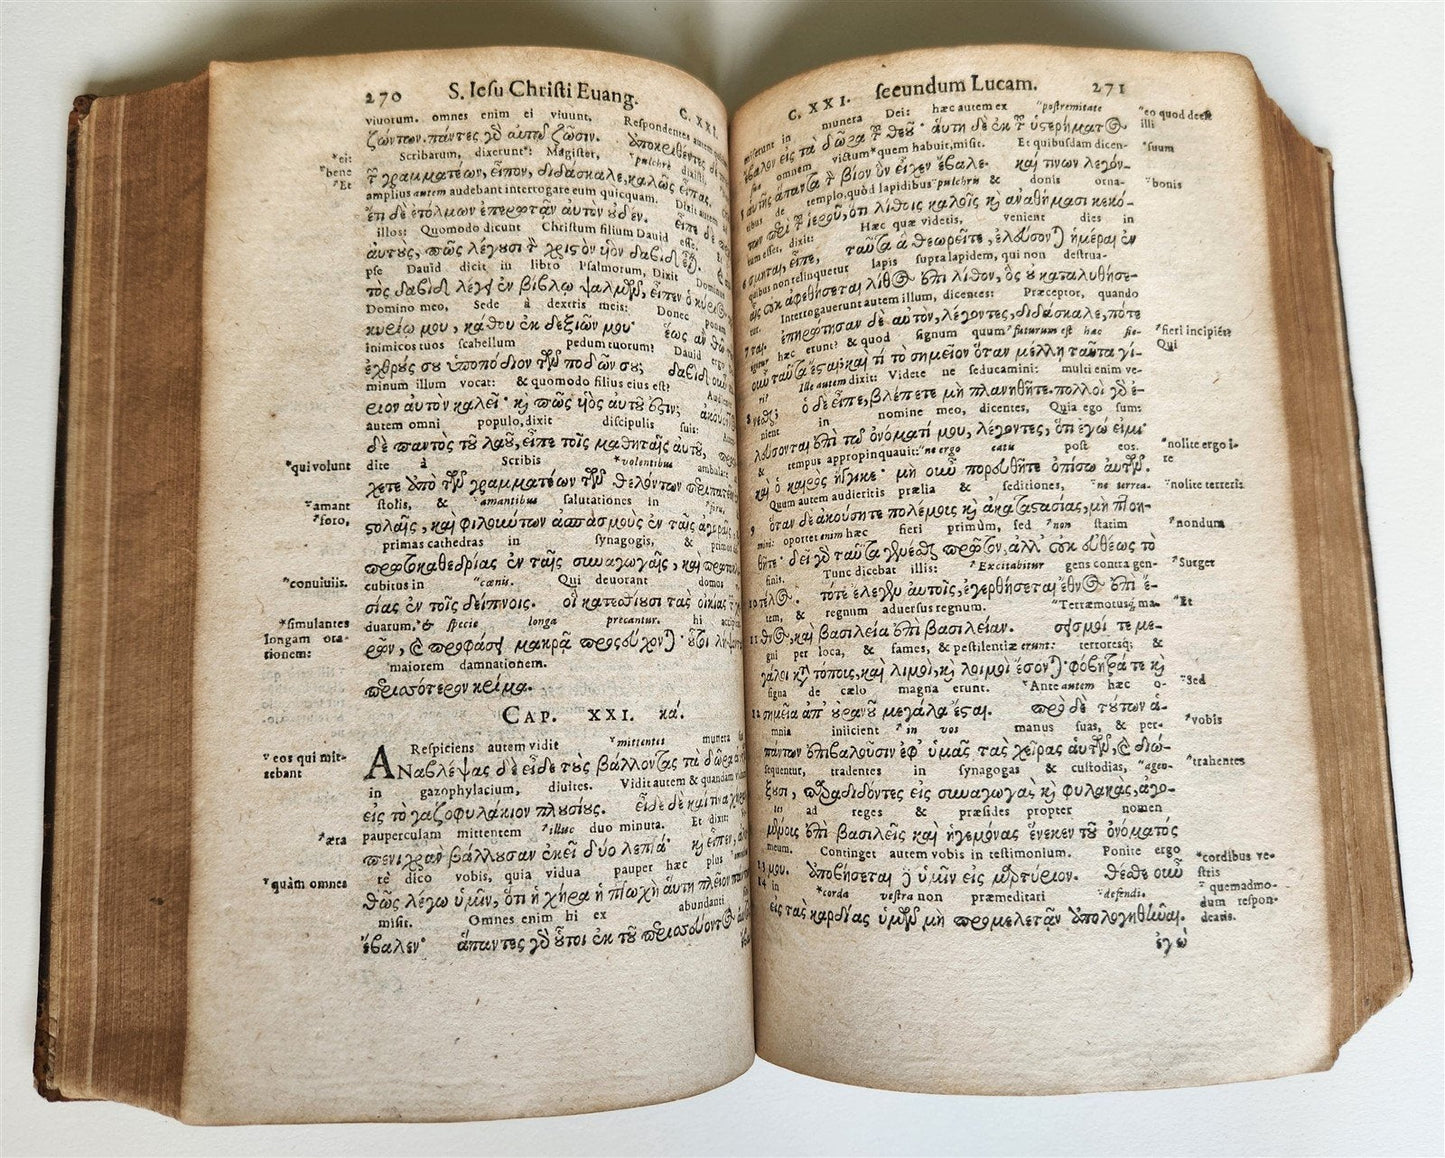 270 S. Iesu Christi Euang. C. XXI.
viuotum. omnes enim ei viuunt. Respondentes autem
ζώντων. πάντες γδ αὐτῷ ζῶσιν. ὑποκριθέντες δέ
*eit Scribarum, dixerunt: Magister, *pulchrè dixisti,
*bene
τ γραμματέων, εἶπον, διδάσκαλε, καλῶς εἶπας.
*Et amplius autem audebant interrogare eum quicquam. Dixit autem
ἔτι δὲ ἐτόλμων ἐπερωτᾶν αὐτὸν ȣ̓δέν. εἶπε δὲ
illos: Quomodo dicunt Christum filium Dauid esse. Et
αὐτοὺς, πῶς λέγουσι τ χριςὸν ὑὸν δαβὶδ εἶ).
pse Dauid dicit in libro Psalmorum, Dixit Dominus
τὸς δαβὶδ λέγει ἐν βίβλῳ ψαλμῶν, εἶπεν ὁ κύρι@
Domino meo, Sede à dextris meis: Donec ponam
κυρίῳ μου, κάθου ἐκ δεξιῶν μου· ἕως ἂν θῶ
inimicos tuos scabellum pedum tuorum? Dauid ergo
ἐχθρούς σου ὑποπόδιον τῶν ποδῶν σου; δαβὶδ οὖν
minum illum vocat: & quomodo filius eius est?
ριον αὐτὸν καλεῖ· κὶ πῶς ὑὸς αὐτοῦ ἐστιν;
autem omni populo, dixit discipulis suis:
δὲ παντὸς τοῦ λαοῦ, εἶπε τοῖς μαθηταῖς αὐτοῦ,
*qui volunt dite à Scribis *volentibus ambulare
χετε ἀπὸ τῶν γραμματέων τῶν θελόντων περιπατεῖν
*amant stolis, & *amantibus salutationes in
*foro,
στολαῖς, καὶ φιλούντων ἀσπασμοὺς ἐν ταῖς ἀγοραῖς,
primas cathedras in synagogis, &
πρωτοκαθεδρίας ἐν ταῖς συναγωγαῖς, καὶ
*conuiuiis. cubitus in *cœnis. Qui deuorant domos
σίας ἐν τοῖς δείπνοις. οἳ κατεσθίουσι τὰς οἰκίας
*simulantes longam orationem: duarum, & specie longa precantur. hi
ρῶν, καὶ προφάσει μακρᾷ προσεύχον)· οὗτοι
maiorem damnationem.
περισσότερον κρίμα.
CAP. XXI. κά.
*eos qui mittebant Respiciens autem vidit *mittentes munera
ΑΝαβλέψας δὲ εἶδε τοὺς βάλλοντας τὰ δῶρα
in gazophylacium, diuites. Vidit autem & quandam
εἰς τὸ γαζοφυλάκιον πλουσίους. εἶδε δὲ καί τινα
*æra pauperculam mittentem *illuc duo minuta. Et dixit:
πενιχρὰν βάλλουσαν ἐκεῖ δύο λεπτά· κὶ εἶπεν,
*quàm omnes rè dico vobis, quia vidua pauper hæc plus
θῶς λέγω ὑμῖν, ὅτι ἡ χήρα ἡ πτωχὴ αὕτη πλεῖον
misit. Omnes enim hi ex abundanti
ἔβαλεν· ἅπαντες γδ οὗτοι ἐκ τοῦ περισσεύοντ@
C. XXI. secundum Lucam. 271
miserunt in munera Dei: hæc autem ex *postremitate *eo quod deest illi
ἔβαλον εἰς τὰ δῶρα τ θεοῦ· αὕτη δὲ ἐκ τ ὑστερήματ@
sua omnem victum *quem habuit, misit. Et quibusdam dicen- *suum
αὐτῆς ἅπαντα τ βίον ὃν εἶχεν ἔβαλε. καί τινων λεγόν-
tibus de templo, quòd lapidibus *pulchris & donis orna- *bonis
των περὶ τ ἱεροῦ, ὅτι λίθοις καλοῖς κὶ ἀναθήμασι κεκό-
tum esset, dixit: Hæc quæ videtis, venient dies in
6 σμηται, εἶπε, ταῦτα ἃ θεωρεῖτε, ἐλεύσον) ἡμέραι ἐν
quibus non relinquetur lapis supra lapidem, qui non destrua-
αἷς οὐκ ἀφεθήσεται λίθ@ ἐπὶ λίθον, ὃς οὐ καταλυθήσε-
tur. Interrogauerunt autem illum, dicentes: Præceptor, quando
7 ται. ἐπηρώτησαν δὲ αὐτὸν, λέγοντες, διδάσκαλε, πότε
igitur hæc erunt? & quod signum quum *futurum est hæc fie- *fieri incipiēt
οὖν ταῦτα ἔσται; καὶ τί τὸ σημεῖον ὅταν μέλλῃ ταῦτα γί-
ri? Ille autem dixit: Videte ne seducamini: multi enim ve- Qui
8 νεσθαι; ὁ δὲ εἶπε, βλέπετε μὴ πλανηθῆτε. πολλοὶ γδ ἐ-
nient in nomine meo, dicentes, Quia ego sum:
λεύσονται ἐπὶ τῷ ὀνόματί μου, λέγοντες, ὅτι ἐγώ εἰμι·
& tempus appropinquauit: *ne ergo eatis post eos. *nolite ergo ire
καὶ ὁ καιρὸς ἤγγικε· μὴ οὖν πορευθῆτε ὀπίσω αὐτῶν.
Quum autem audieritis prælia & seditiones, *ne terrea- *nolite terreri
9 ὅταν δὲ ἀκούσητε πολέμους κὶ ἀκαταστασίας, μὴ πτοη-
mini: oportet enim hæc fieri primùm, sed *non statim *nondum
θῆτε· δεῖ γδ ταῦτα γενέσθαι πρῶτον, ἀλλ' οὐκ εὐθέως τὸ
finis. Tunc dicebat illis: *Excitabitur gens contra gen- *Surget
10 τέλ@. τότε ἔλεγεν αὐτοῖς, ἐγερθήσεται ἔθν@ ἐπὶ ἔ-
tem, & regnum aduersus regnum. *Terræmotusq; ma- *Et
11 θν@, καὶ βασιλεία ἐπὶ βασιλείαν. σεισμοί τε με-
gni per loca, & fames, & pestilentiæ erunt: terroresq; &
γάλοι κατὰ τόπους, καὶ λιμοὶ, κὶ λοιμοὶ ἔσον)· φόβητρά τε κὶ
signa de cælo magna erunt. *Ante autem hæc o- *Sed
12 σημεῖα ἀπ' οὐρανοῦ μεγάλα ἔσται. πρὸ δὲ τούτων ἁ-
mnia iniicient *in vos manus suas, & per- *vobis
πάντων ἐπιβαλοῦσιν ἐφ' ὑμᾶς τὰς χεῖρας αὑτῶν, καὶ διώ-
sequentur, tradentes in synagogas & custodias, *agen- *trahentes
ξουσι, παραδιδόντες εἰς συναγωγὰς κὶ φυλακὰς, ἀγο-
tes ad reges & præsides propter nomen
μένους ἐπὶ βασιλεῖς καὶ ἡγεμόνας ἕνεκεν τοῦ ὀνόματός
meum. Continget autem vobis in testimonium. Ponite ergo *cordibus vestris
13 μου. ἀποβήσεται δὲ ὑμῖν εἰς μαρτύριον. θέσθε οὖν
14 in *corda vestra non præmeditari *defendi. *quemadmodum respondeatis.
εἰς τὰς καρδίας ὑμῶν μὴ προμελετᾷν ἀπολογηθῆναι.
ἐγὼ